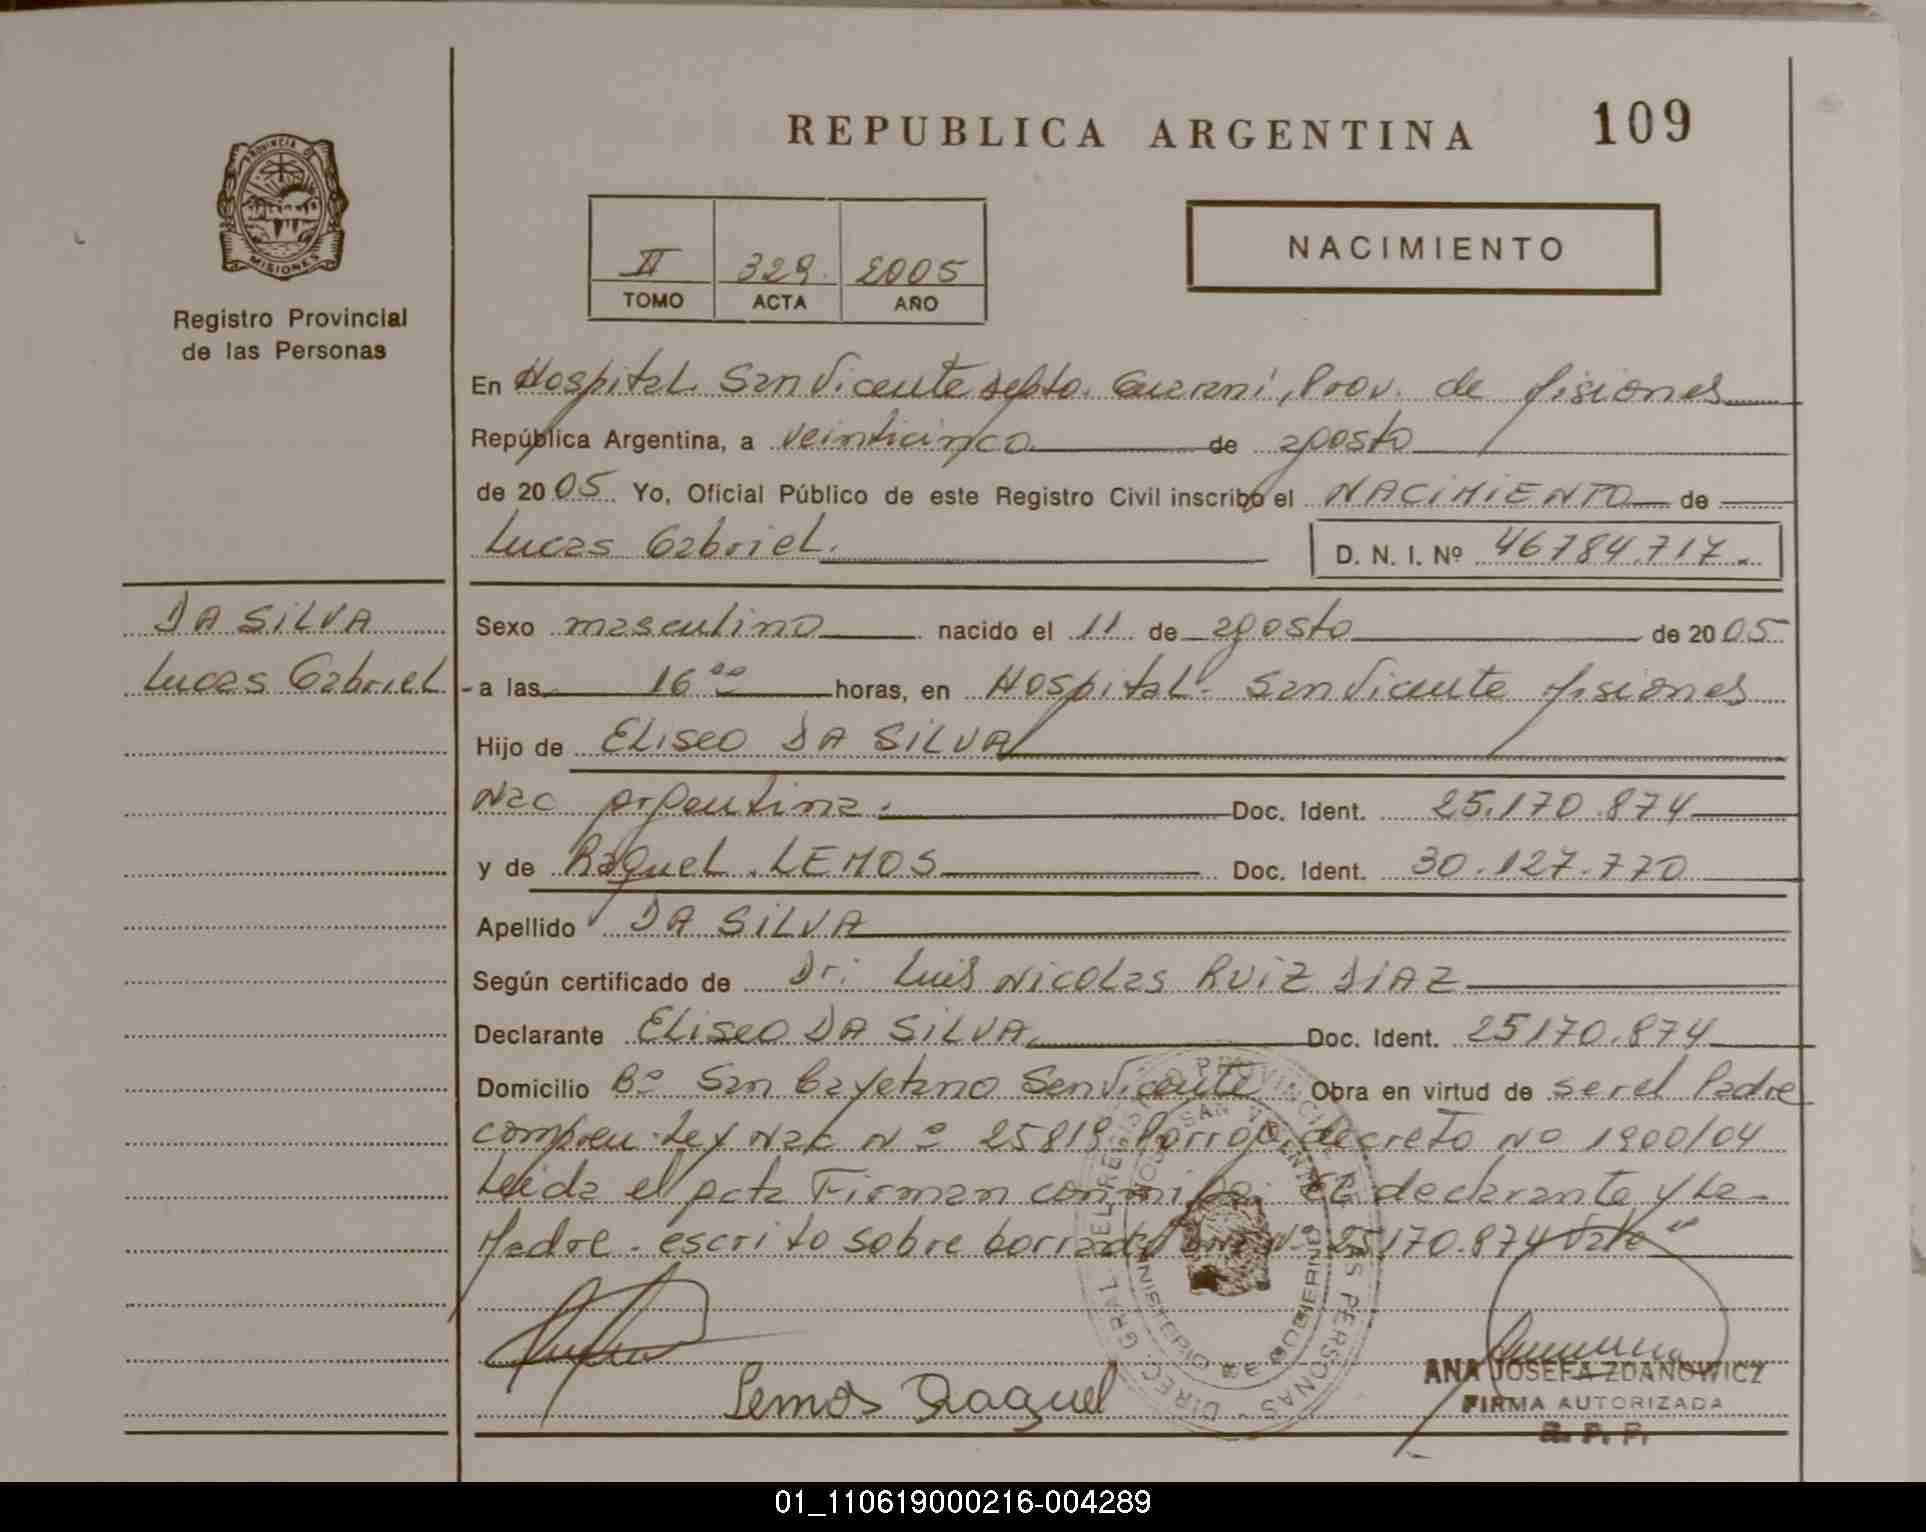 REPUBLICA ARGENTINA 109
PROVINCIA DE
MISIONES
Registro Provincial
de las Personas
II 329. 2005
TOMO ACTA AÑO
NACIMIENTO
En Hospital. San Vicente depto. Guarani, Prov. de Misiones
República Argentina, a veinticinco de agosto
de 2005. Yo, Oficial Público de este Registro Civil inscribo el NACIMIENTO de
Lucas Gabriel. D. N. I. Nº 46784.717.
DA SILVA
Lucas Gabriel
Sexo masculino nacido el 11 de agosto de 2005
a las 16 ºº horas, en Hospital. San Vicente Misiones
Hijo de Eliseo DA SILVA
Nac argentina. Doc. Ident. 25.170.874
y de Raquel. LEMOS Doc. Ident. 30.127.770
Apellido DA SILVA
Según certificado de Dr: Luis Nicolas RUIZ DIAZ
Declarante Eliseo DA SILVA. Doc. Ident. 25170.874
Domicilio Bº San Cayetano San Vicente Obra en virtud de ser el Padre
compren. Ley Nac Nº 25819 Porrog decreto Nº 1900/04
Leida el acta Firman conmigo: El declarante y La
Madre. escrito sobre borrado 25170.874 Vale"
DIREC. GRAL. DEL REGISTRO PROVINCIAL DE LAS PERSONAS
SAN VICENTE
MINISTERIO DE GOBIERNO
Lemos Raquel
ANA JOSEFA ZDANOWICZ
FIRMA AUTORIZADA
R. P. P.
01_110619000216-004289